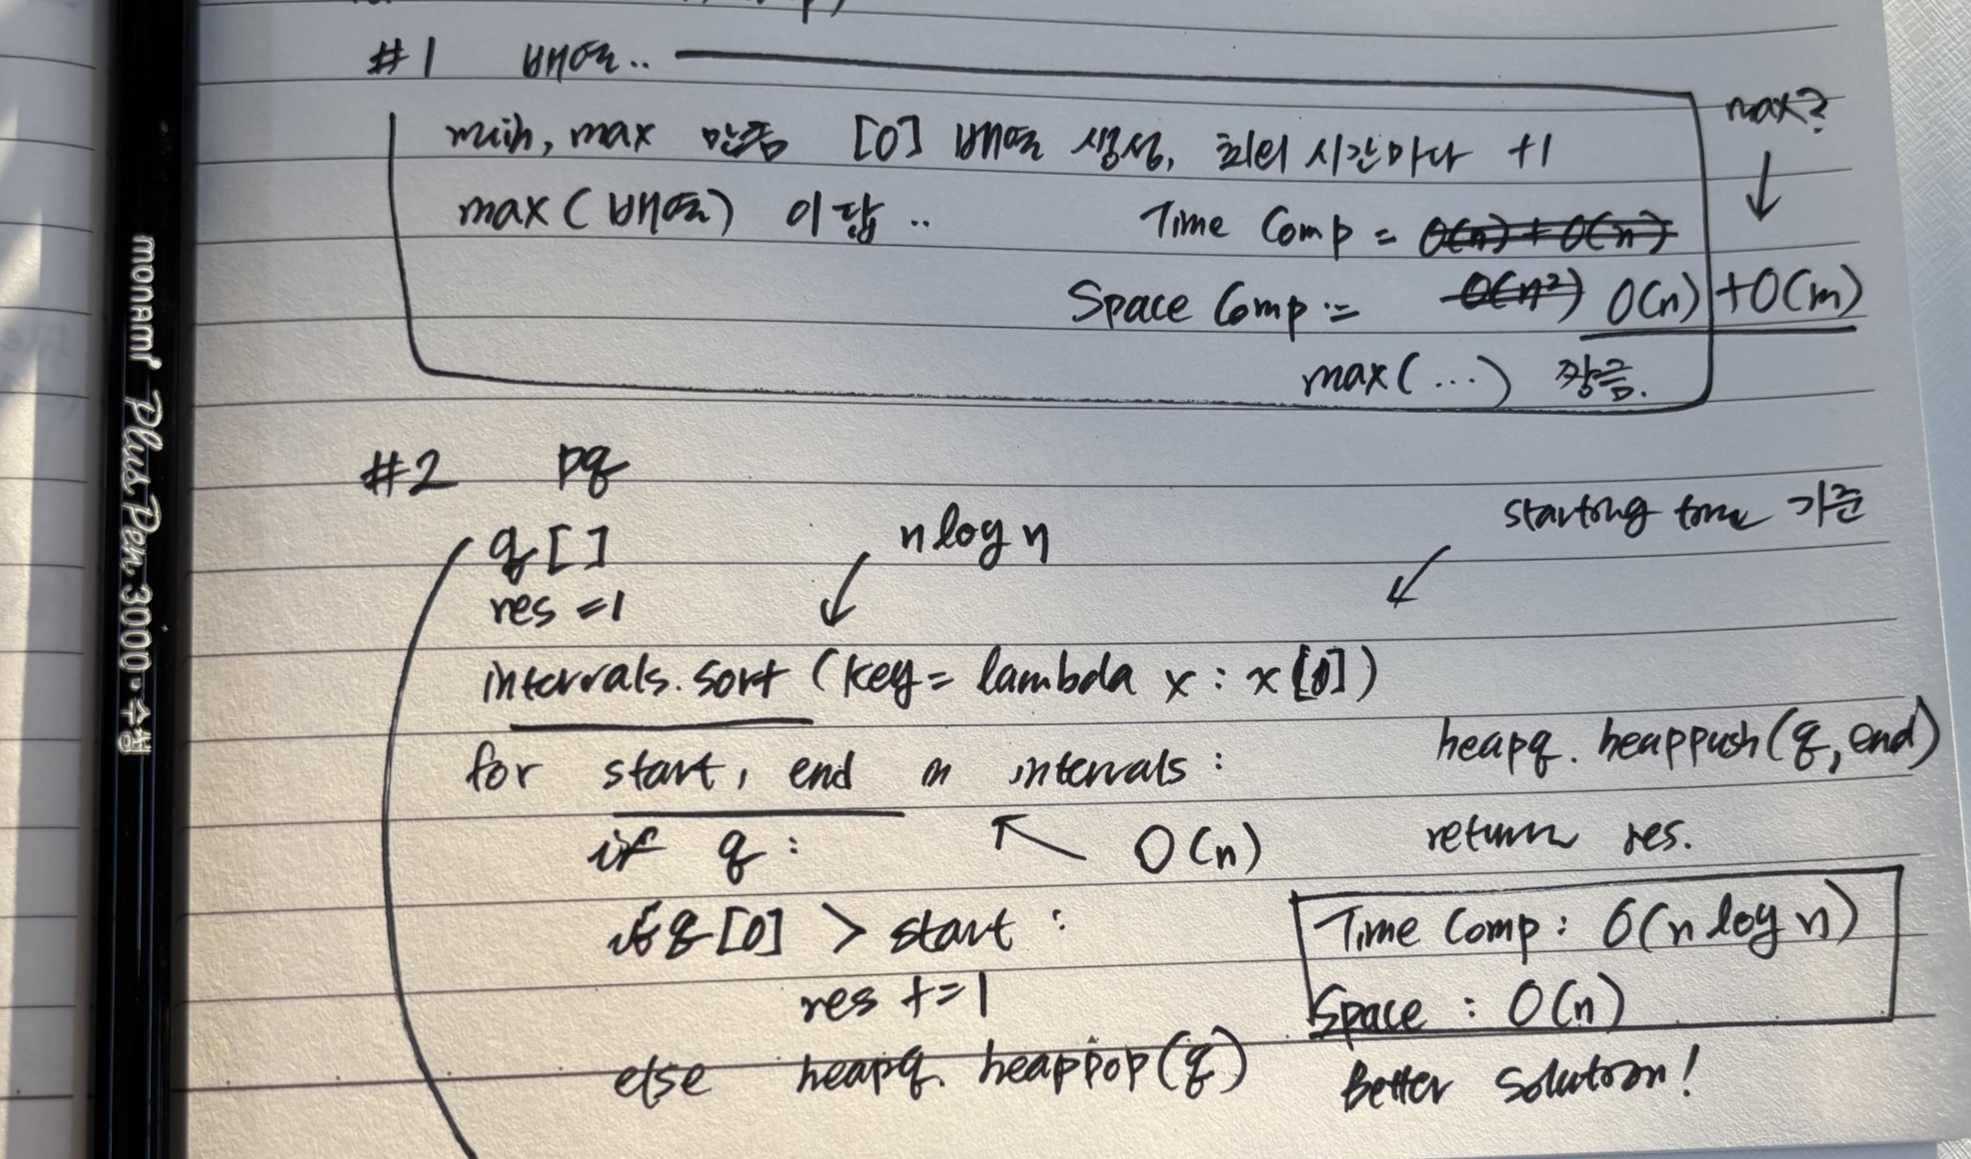 #1 배열..
min, max 만듦 [0] 배열 생성, 회의 시간마다 +1
max?
max(배열) 이 답..
Time Comp = O(n) + O(n)
Space Comp := O(n²) O(n) + O(m)
max(...) 짱큼.
#2 pq
q[]
nlogn
starting time 기준
res =1
intervals.sort (key= lambda x : x[0])
for start, end in intervals :
if q :
O(n)
if q[0] > start :
res +=1
else heapq. heappop(q)
heapq. heappush(q, end)
return res.
Time Comp : O(n log n)
Space : O(n)
Better Solution!
monami Plus Pen 3000 수성